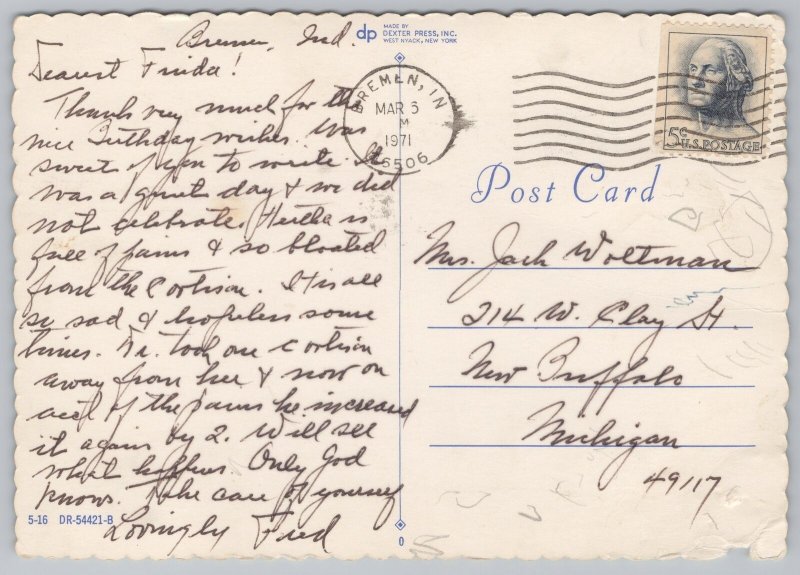 Bremen, Ind.
Dearest Frieda!
Thanks very much for the
nice Birthday wishes. Was
sweet of you to write. It
was a quiet day & we did
not celebrate. Hertha is
full of pains & so bloated
from the Cortison. It is all
so sad & hopeless some
times. Dr. took one cortison
away from her & now on
acct of the pains he increased
it again by 2. Will see
what happens. Only God
knows. Take care of yourself
Lovingly Fred
5-16 DR-54421-B
dp MADE BY
DEXTER PRESS, INC.
WEST NYACK, NEW YORK
BREMEN, IN
MAR 6
M
1971
46506
5¢ U.S. POSTAGE
Post Card
Mrs. Jack Woltman
214 W. Clay St.
New Buffalo
Michigan
49117
0